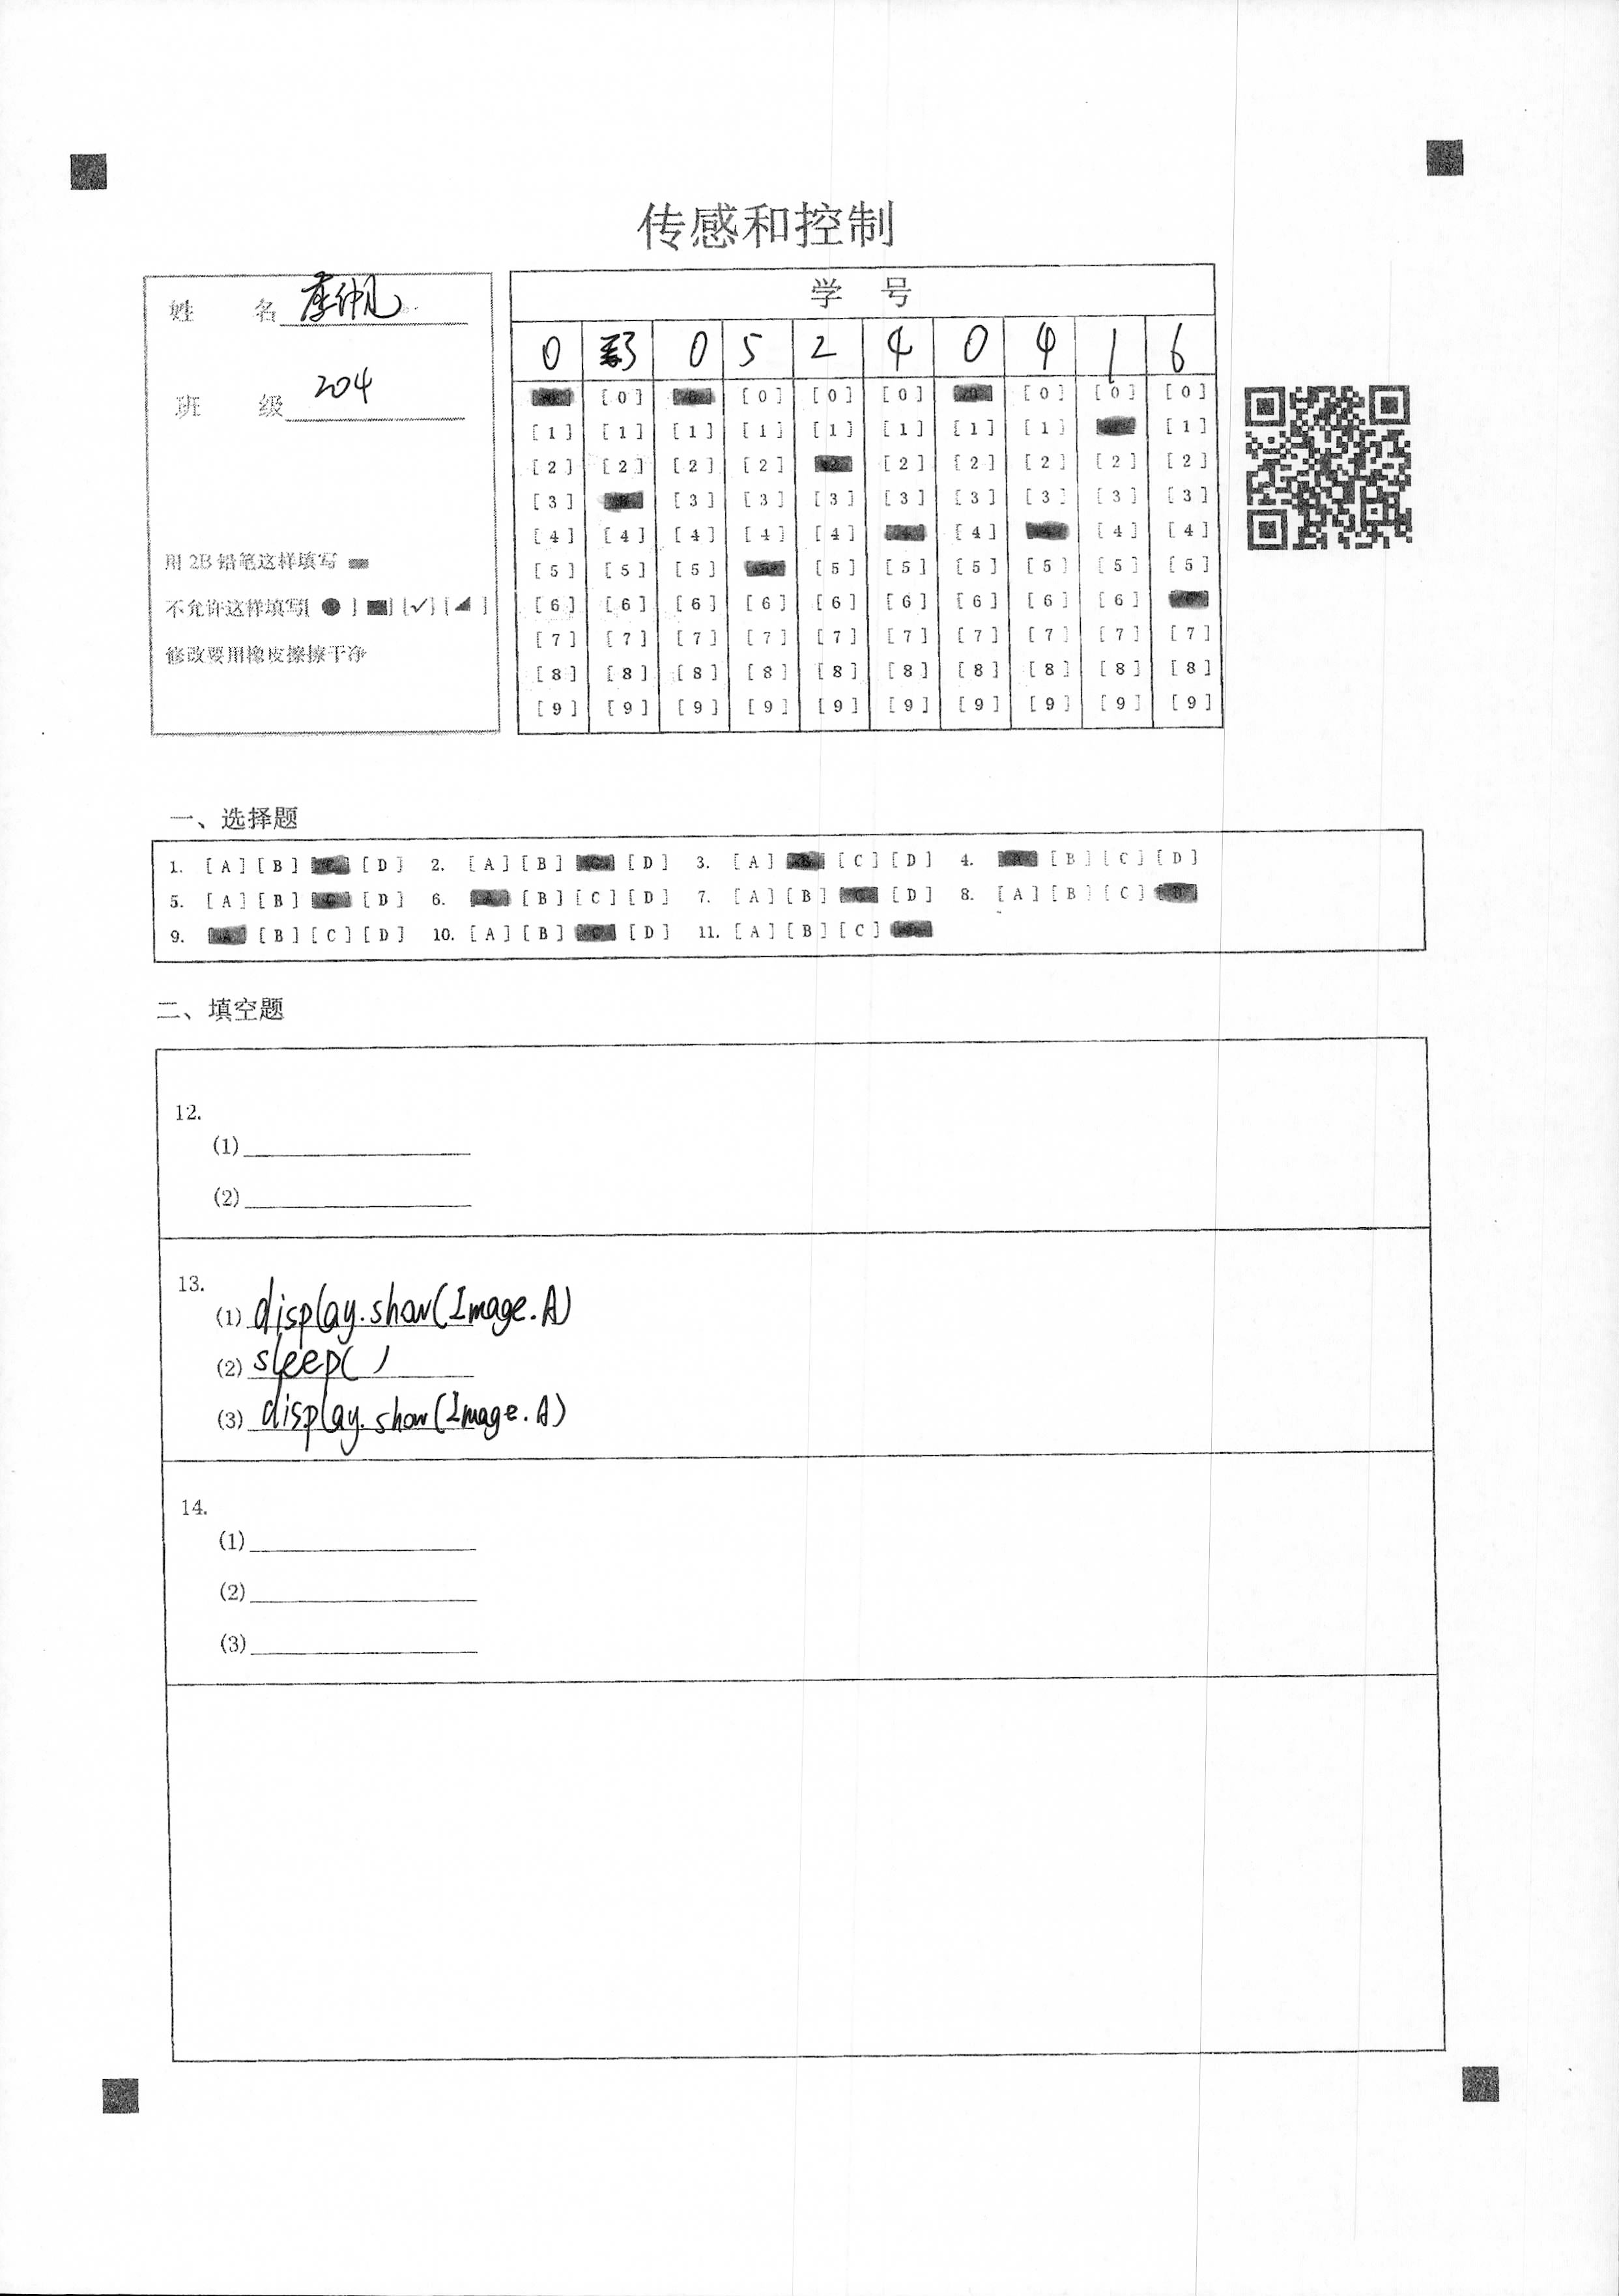 传感和控制
姓 名
班 级 204
用 2B 铅笔这样填写
不允许这样填写[ ● ] [■] [✓] [◢ ]
修改要用橡皮擦擦干净
学 号
0 3 0 5 2 4 0 4 1 6
[0] [0] [0] [0] [0] [0] [0] [0] [0] [0]
[1] [1] [1] [1] [1] [1] [1] [1] [1] [1]
[2] [2] [2] [2] [2] [2] [2] [2] [2] [2]
[3] [3] [3] [3] [3] [3] [3] [3] [3] [3]
[4] [4] [4] [4] [4] [4] [4] [4] [4] [4]
[5] [5] [5] [5] [5] [5] [5] [5] [5] [5]
[6] [6] [6] [6] [6] [6] [6] [6] [6] [6]
[7] [7] [7] [7] [7] [7] [7] [7] [7] [7]
[8] [8] [8] [8] [8] [8] [8] [8] [8] [8]
[9] [9] [9] [9] [9] [9] [9] [9] [9] [9]
一、选择题
1. [A] [B] [C] [D] 2. [A] [B] [C] [D] 3. [A] [B] [C] [D] 4. [A] [B] [C] [D]
5. [A] [B] [C] [D] 6. [A] [B] [C] [D] 7. [A] [B] [C] [D] 8. [A] [B] [C] [D]
9. [A] [B] [C] [D] 10. [A] [B] [C] [D] 11. [A] [B] [C] [D]
二、填空题
12.
(1)
(2)
13.
(1) display.show(Image.A)
(2) sleep( )
(3) display.show(Image.A)
14.
(1)
(2)
(3)